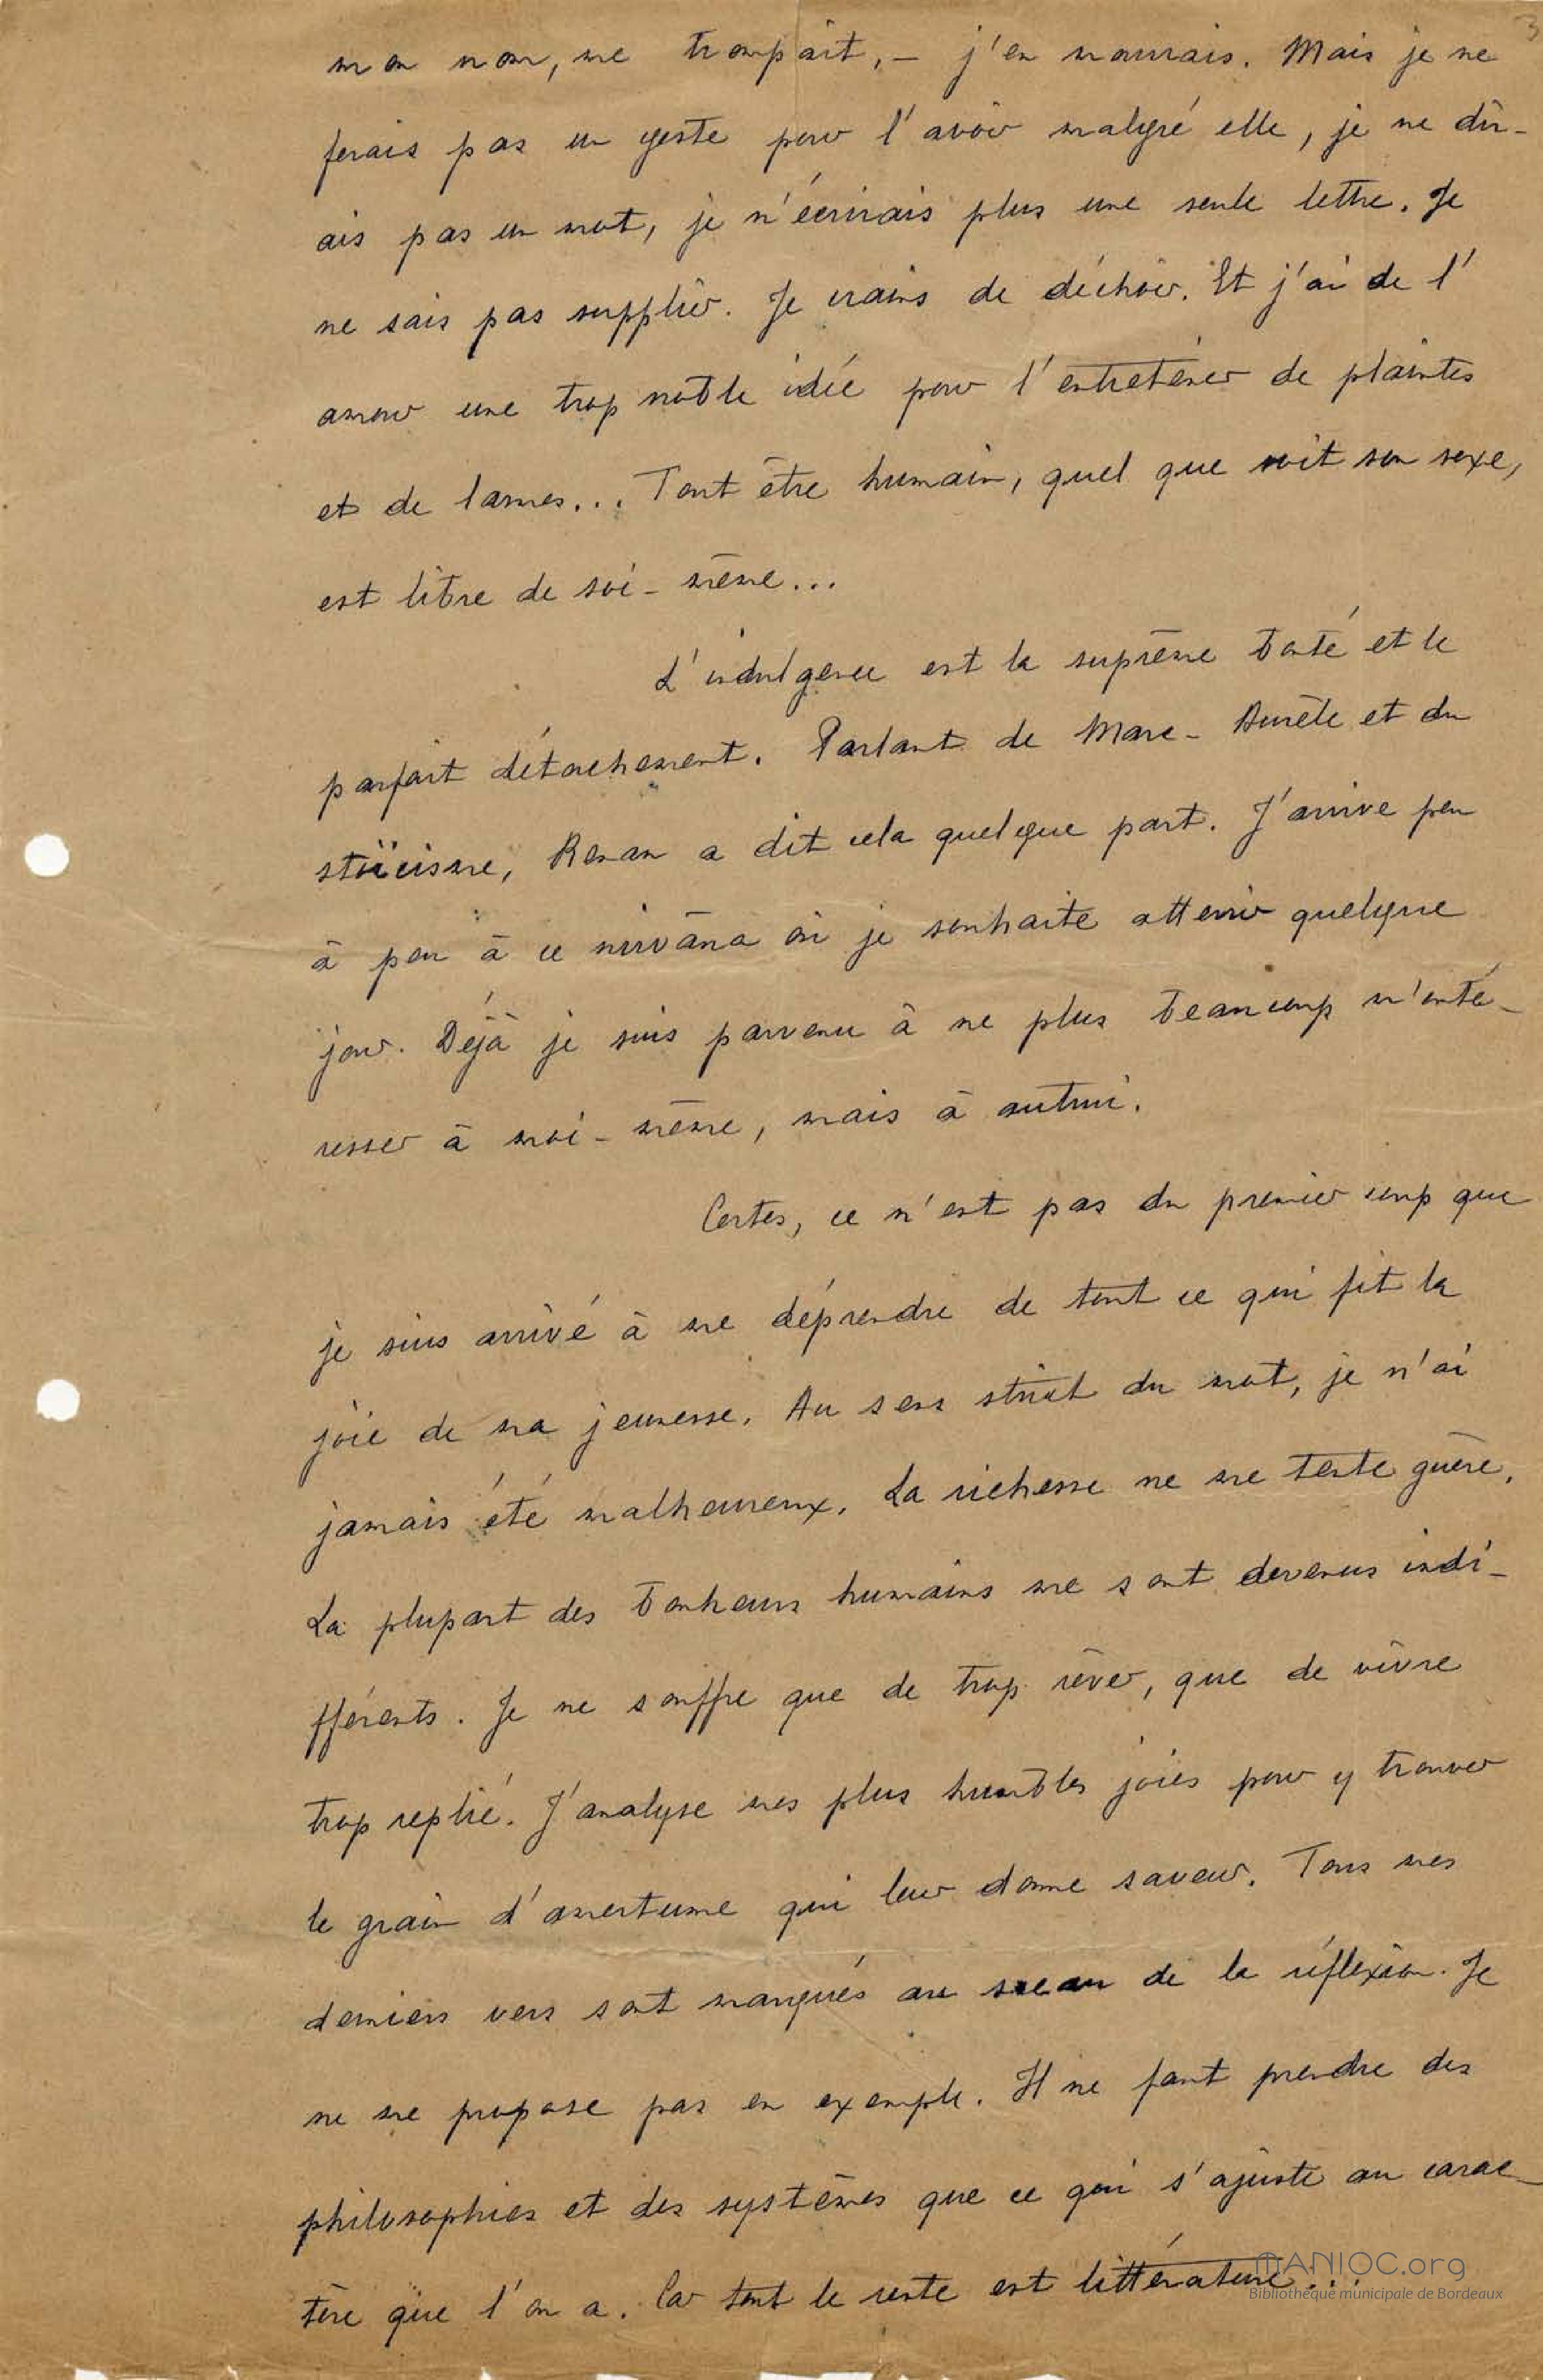 3
mon nom, me trompait, — j'en mourrais. Mais je ne
ferais pas un geste pour l'avoir malgré elle, je ne dir-
ais pas un mot, je n'écrirais plus une seule lettre. Je
ne sais pas supplier. Je crains de déchoir. Et j'ai de l'
amour une trop noble idée pour l'entretenir de plaintes
et de larmes... Tout être humain, quel que soit son sexe,
est libre de soi-même...
L'indulgence est la suprême bonté et le
parfait détachement. Parlant de Marc-Aurèle et du
stoïcisme, Renan a dit cela quelque part. J'arrive peu
à peu à ce nirvâna où je souhaite atterrir quelque
jour. Déjà je suis parvenu à ne plus beaucoup m'inté-
resser à moi-même, mais à autrui.
Certes, ce n'est pas du premier coup que
je suis arrivé à me déprendre de tout ce qui fit la
joie de ma jeunesse. Au sens strict du mot, je n'ai
jamais été malheureux. La richesse ne me tente guère.
La plupart des bonheurs humains me sont devenus indi-
fférents. Je ne souffre que de trop rêver, que de vivre
trop replié. J'analyse mes plus humbles joies pour y trouver
le grain d'amertume qui leur donne saveur. Tous mes
derniers vers sont marqués au sceau de la réflexion. Je
ne me propose pas en exemple. Il ne faut prendre des
philosophies et des systèmes que ce qui s'ajuste au carac-
tère que l'on a. Car tout le reste est littérature...
MANIOC.org
Bibliothèque municipale de Bordeaux